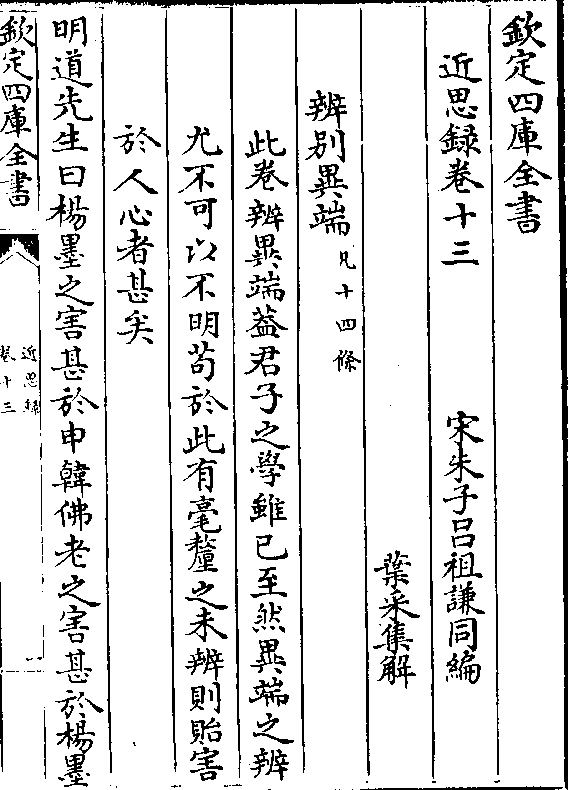 欽定四庫全書
近思録卷十三
宋朱子呂祖謙同編
葉采集解
辨别異端凡十四條
此卷辨異端葢君子之學雖已至然異端之辨
尤不可以不明茍於此有毫釐之未辨則貽害
於人心者甚矣
明道先生曰楊墨之害甚於申韓佛老之害甚於楊墨
欽定四庫全書
近思録
卷十三